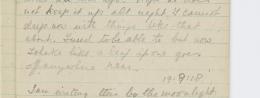 not keep it up all night. I cannot
drop now with things like that
about. I used to be able to but now
I shake like a leaf if one goes
off anywhere near.
19.9.18
I am writing this by the moonlight